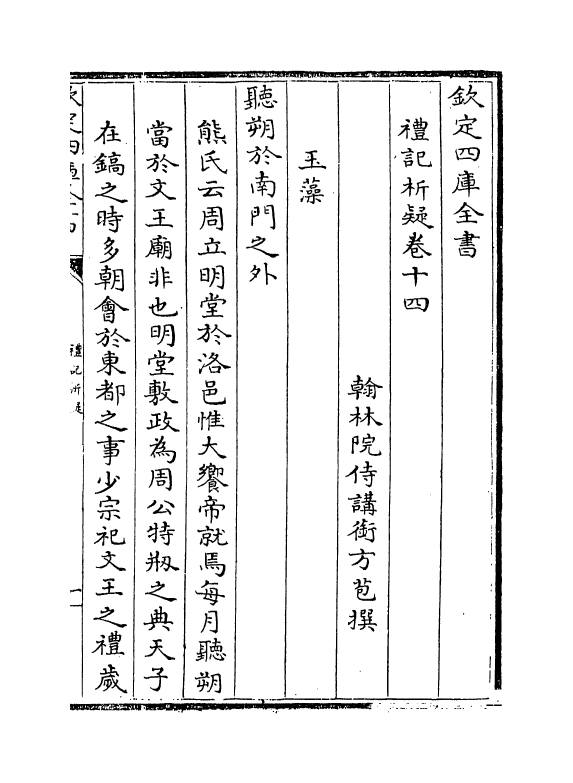 欽定四庫全書
禮記析疑卷十四
翰林院侍講銜方苞撰
玉藻
聽朔於南門之外
熊氏云周立明堂於洛邑惟大饗帝就焉每月聽朔
當於文王廟非也明堂敷政為周公特剏之典天子
在鎬之時多朝會於東都之事少宗祀文王之禮歲
禮記析疑
一